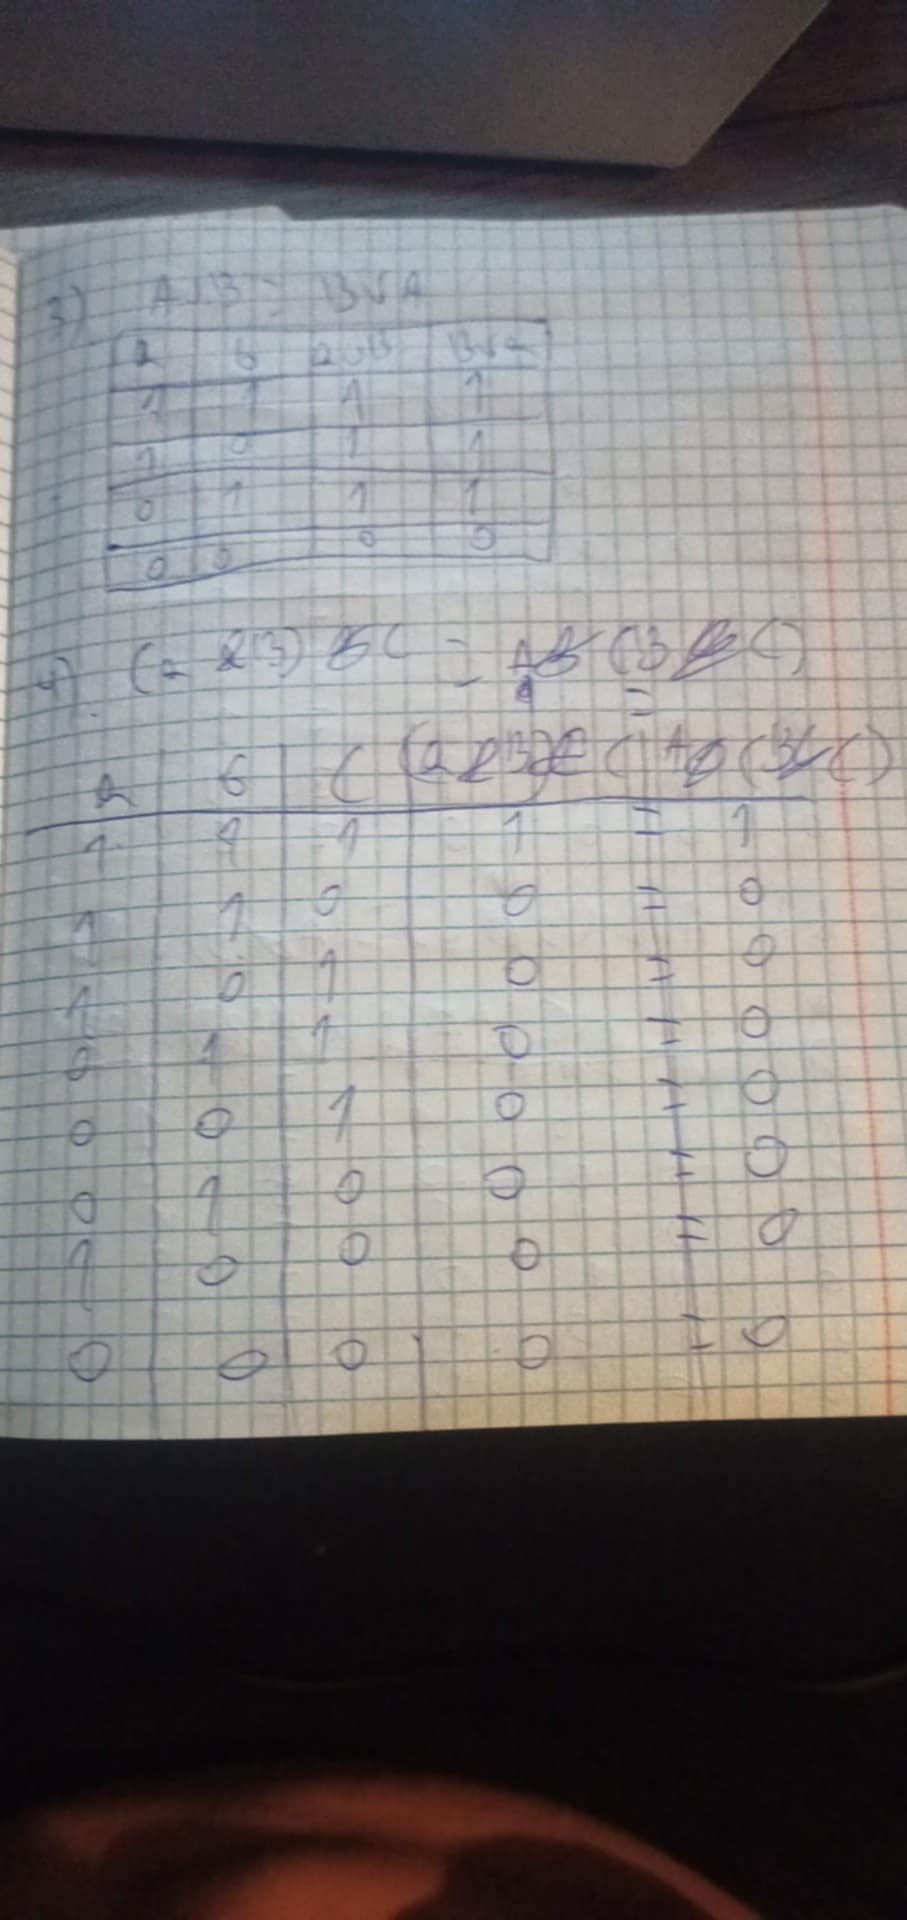 3) A ∨ B = B ∨ A
a б a∨B B∨a
1 1 1 1
1 0 1 1
0 1 1 1
0 0 0 0
4) (a & B) & C = A & (B & C)
=
a б C (a & B) & C A & (B & C)
1 1 1 1 = 1
1 1 0 0 = 0
1 0 1 0 = 0
0 1 1 0 = 0
0 0 1 0 = 0
0 1 0 0 = 0
1 0 0 0 = 0
0 0 0 0 = 0